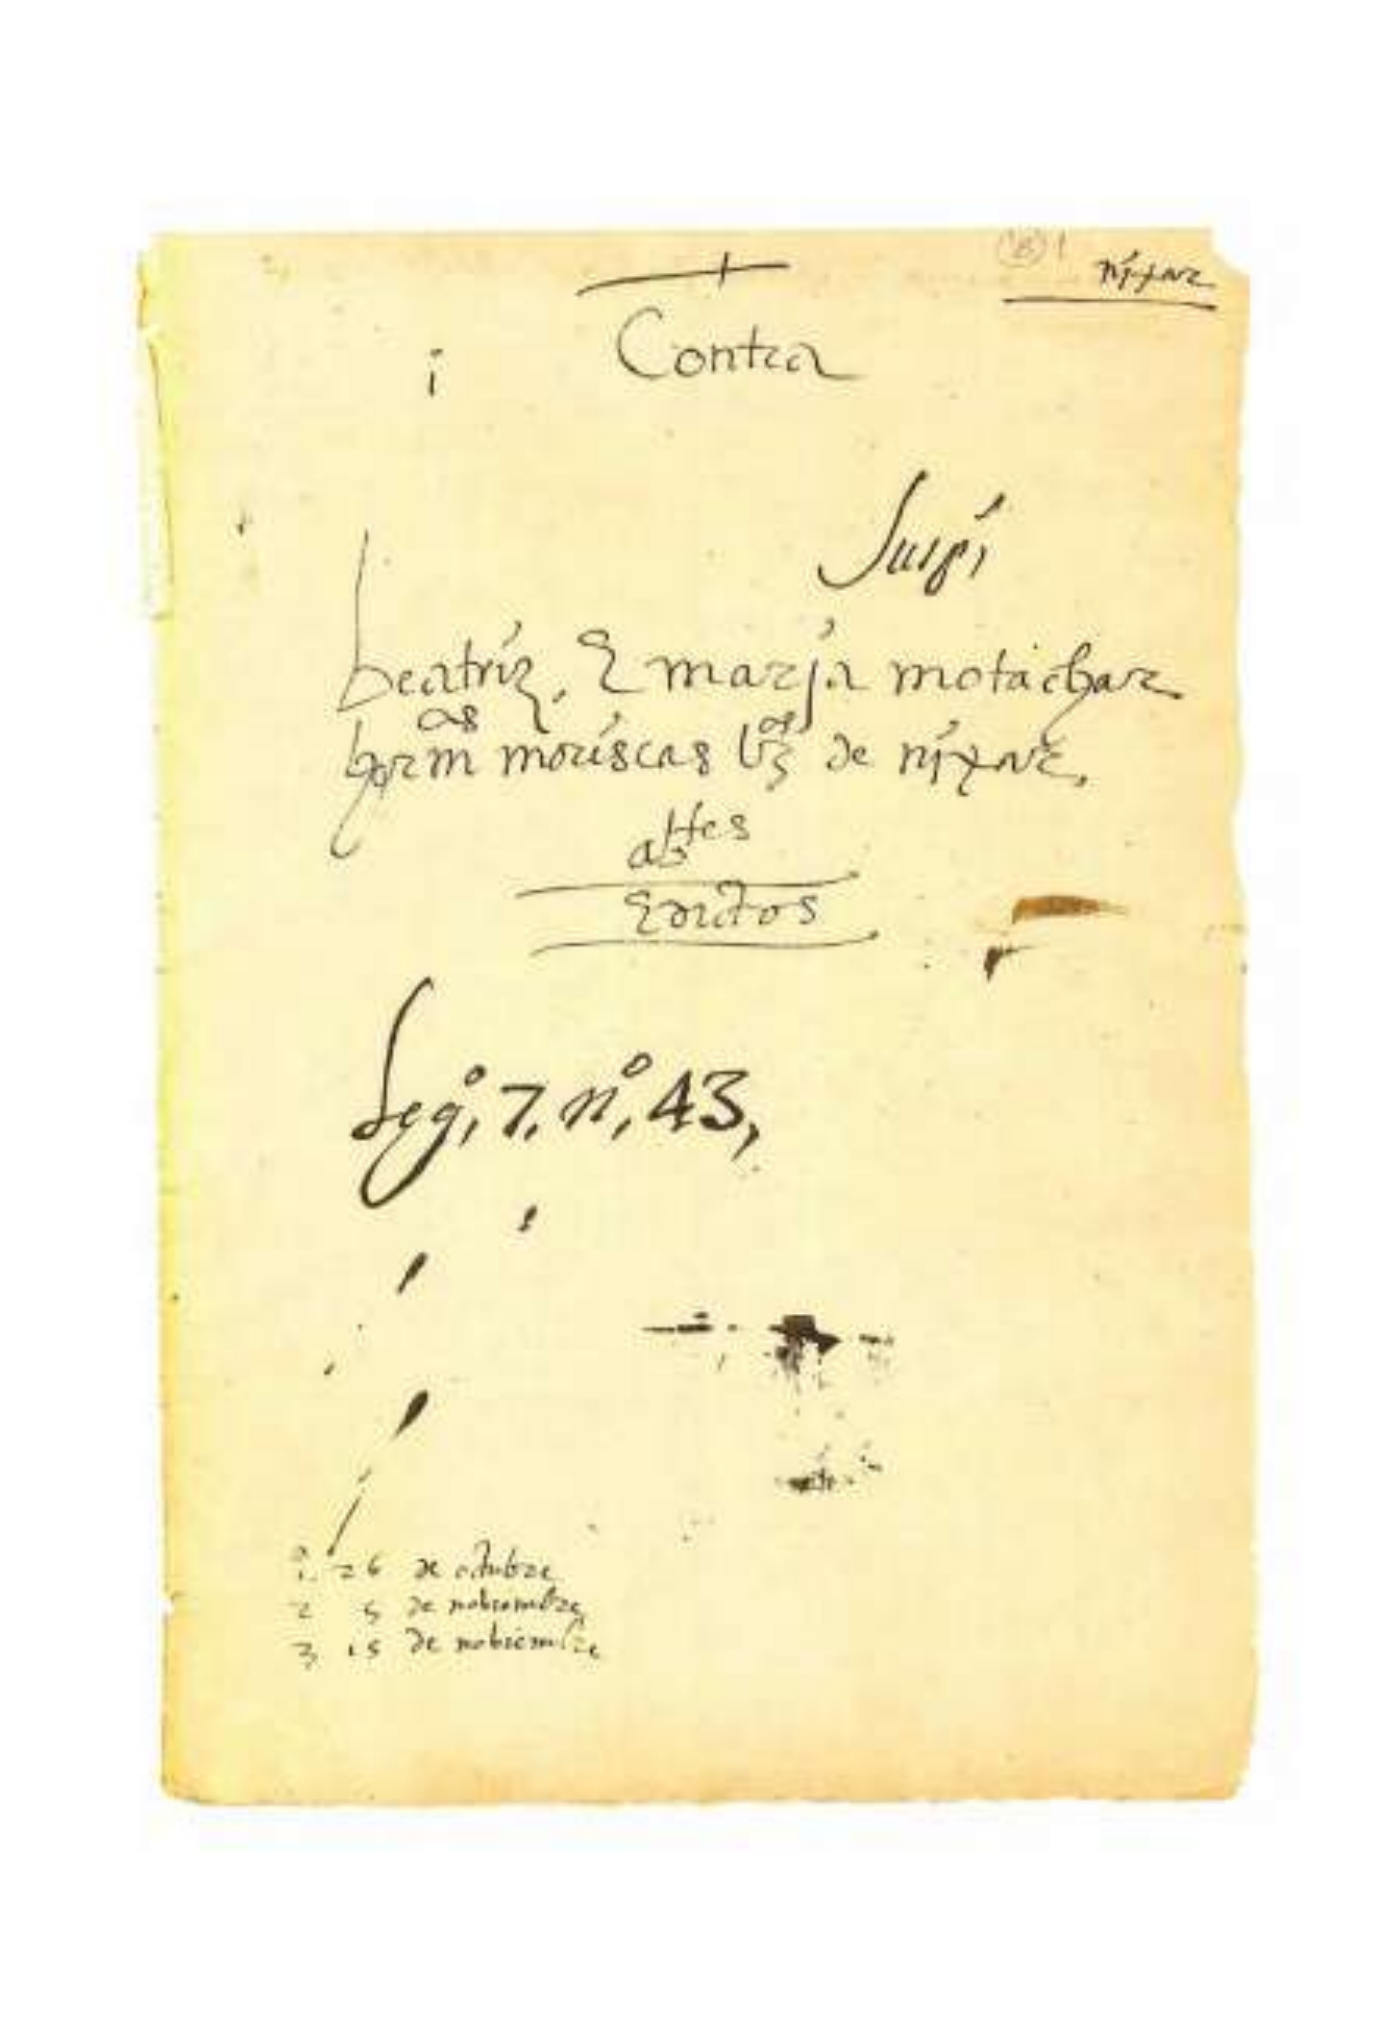 nijar
Contra
i
beatriz, E maria motachar
herm as moriscas vz as de nixar,
abtes
Edictos
Lego, 7, no, 43,
1 26 de octubre
2 5 de nobiembre
3 15 de nobiembre